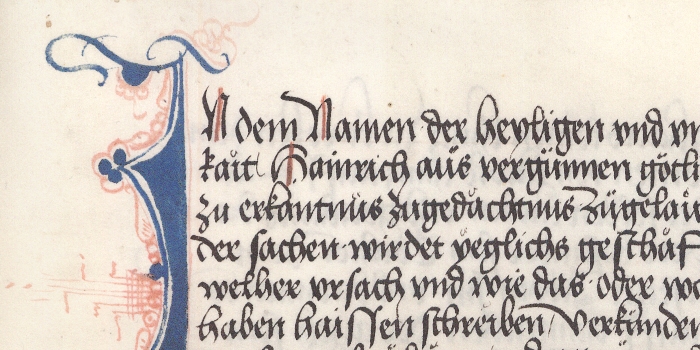 IN dem Namen der heyligen vnd vn
kait Hainrich aüs vergünnen götli
zu erkantnüs zugedächtnus zügelaü
der sachen wirdet yeglichs geschäf
welher vrsach vnd wie das oder we
haben haissen schreiben Verkünden